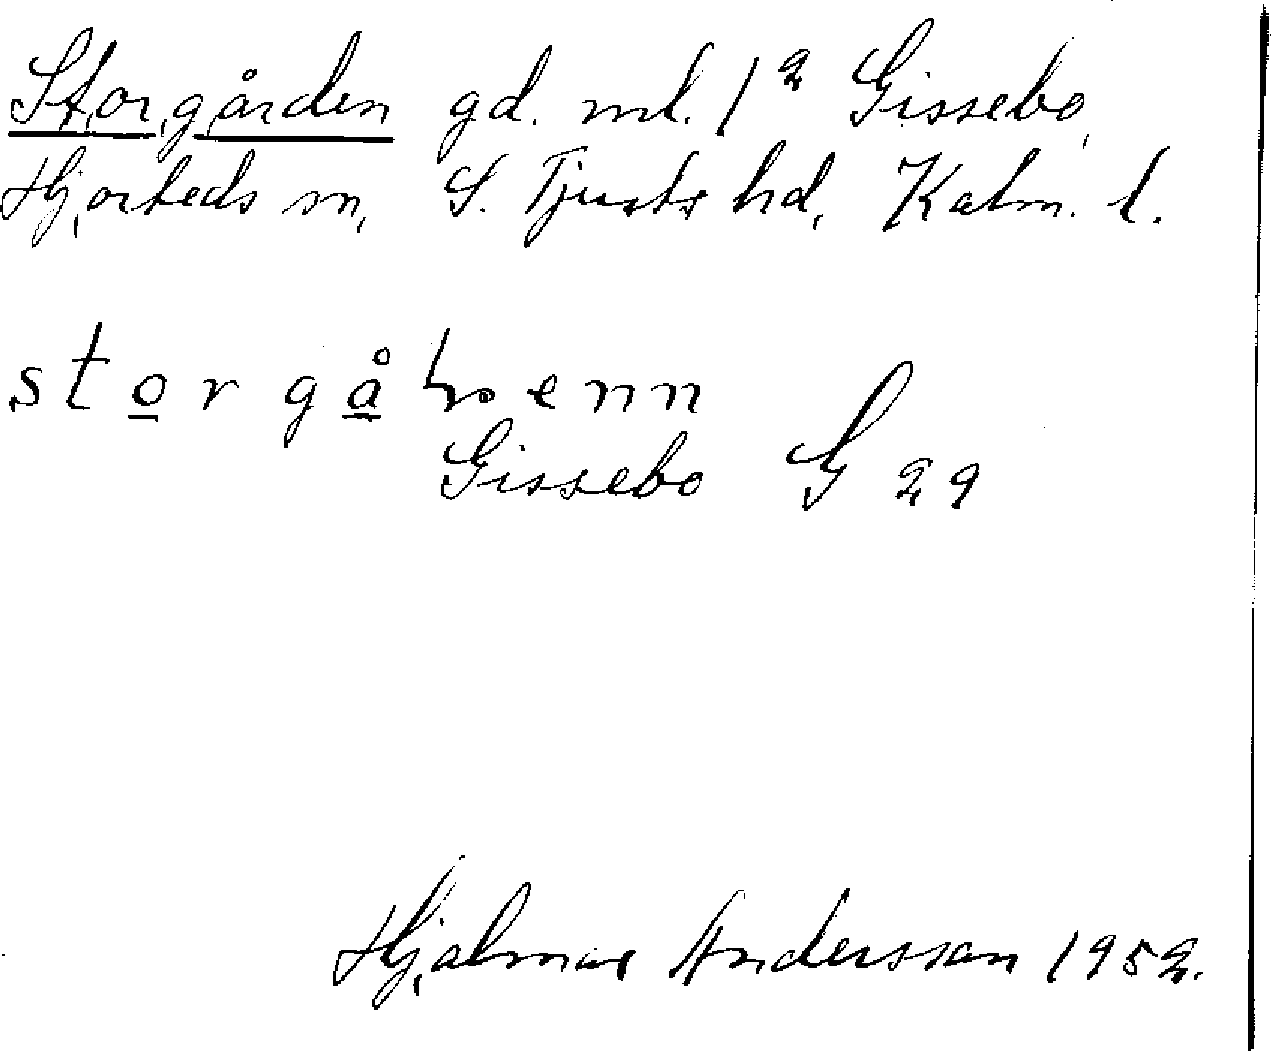 Storgården gd. ml. 1² Gissebo,
Hjorteds sn, S. Tjusts hd, Kalm. l.
storgå enn
Gissebo G 29
Hjalmar Andersson 1952.